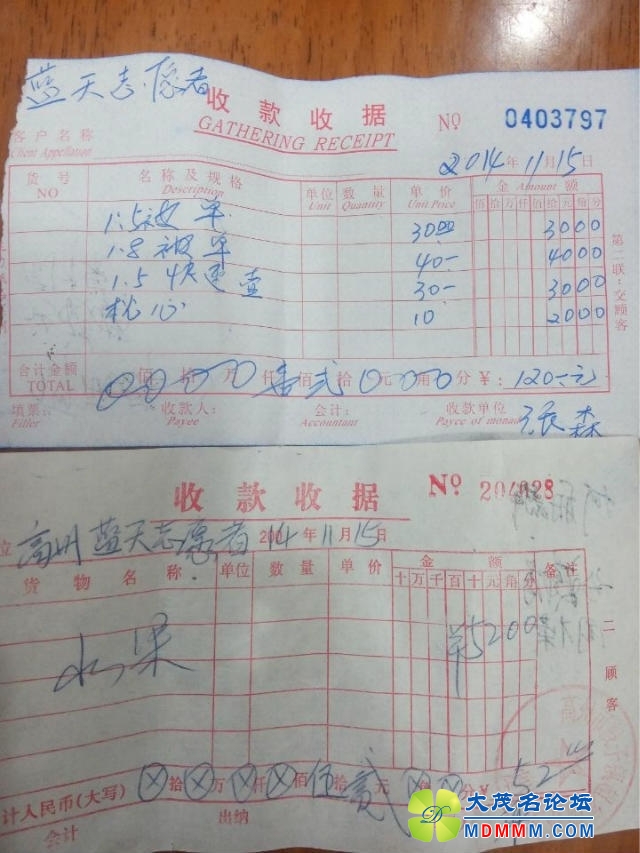 蓝天志愿者
收款收据
GATHERING RECEIPT
No 0403797
客户名称
Client Appellation
2014年11月15日
货号 名称及规格 单位 数量 单价 金 Amount 额
NO Description Unit Quantity Unit Price 佰拾万仟佰拾元角分
1.5被单 30.00 3000
1.8被单 40- 4000
1.5 30- 3000
枕心 10 2000
第二联:交顾客
合计金额 佰拾万仟壹佰贰拾0元0角0分¥: 120-元
TOTAL
填票: 收款人: 会计: 收款单位
Filler Payee Accountant Payee of
张森
收款收据
No 204828
位 高州蓝天志愿者 2014年11月15日
货物名称 单位 数量 单价 金额 备注
十万千百十元角分
水果 ¥5200
二 顾客
计人民币(大写) ⊗拾⊗万⊗仟⊗佰伍拾贰元⊗角⊗分¥ 52
会计 出纳
大茂名论坛
MDMMM.COM